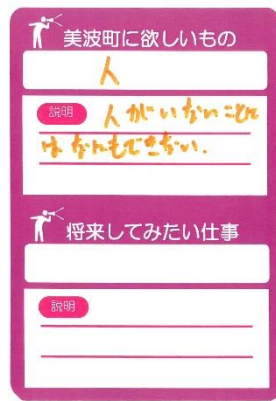 美波町に欲しいもの
人
説明 人がいないことに
はなんもできない.
将来してみたい仕事
説明